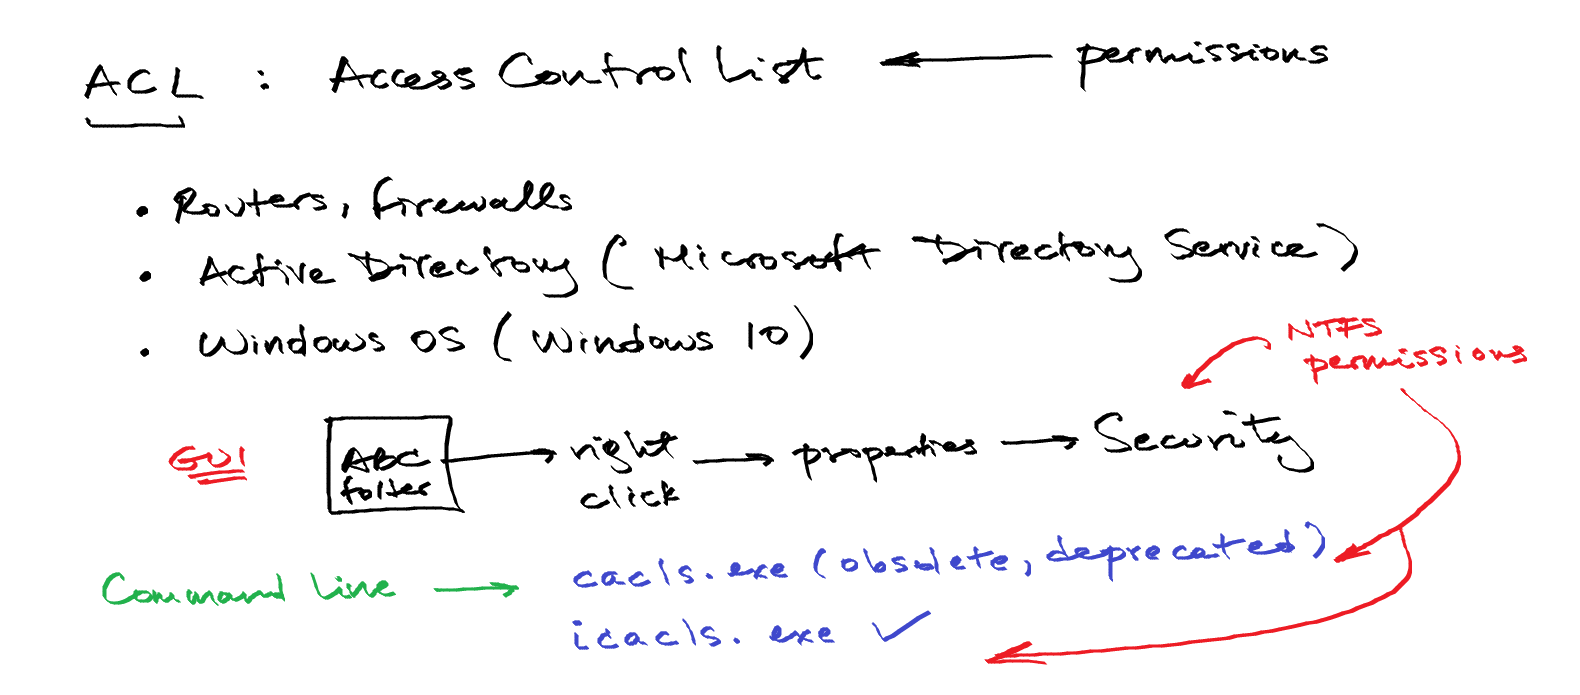 ACL : Access Control List ← permissions
• Routers, firewalls
• Active Directory (Microsoft Directory Service)
• Windows OS (Windows 10)
NTFS
permissions
GUI
ABC
folder
→ right
click
→ properties → Security
Command Line → cacls.exe (obsolete, deprecated)
icacls.exe ✓